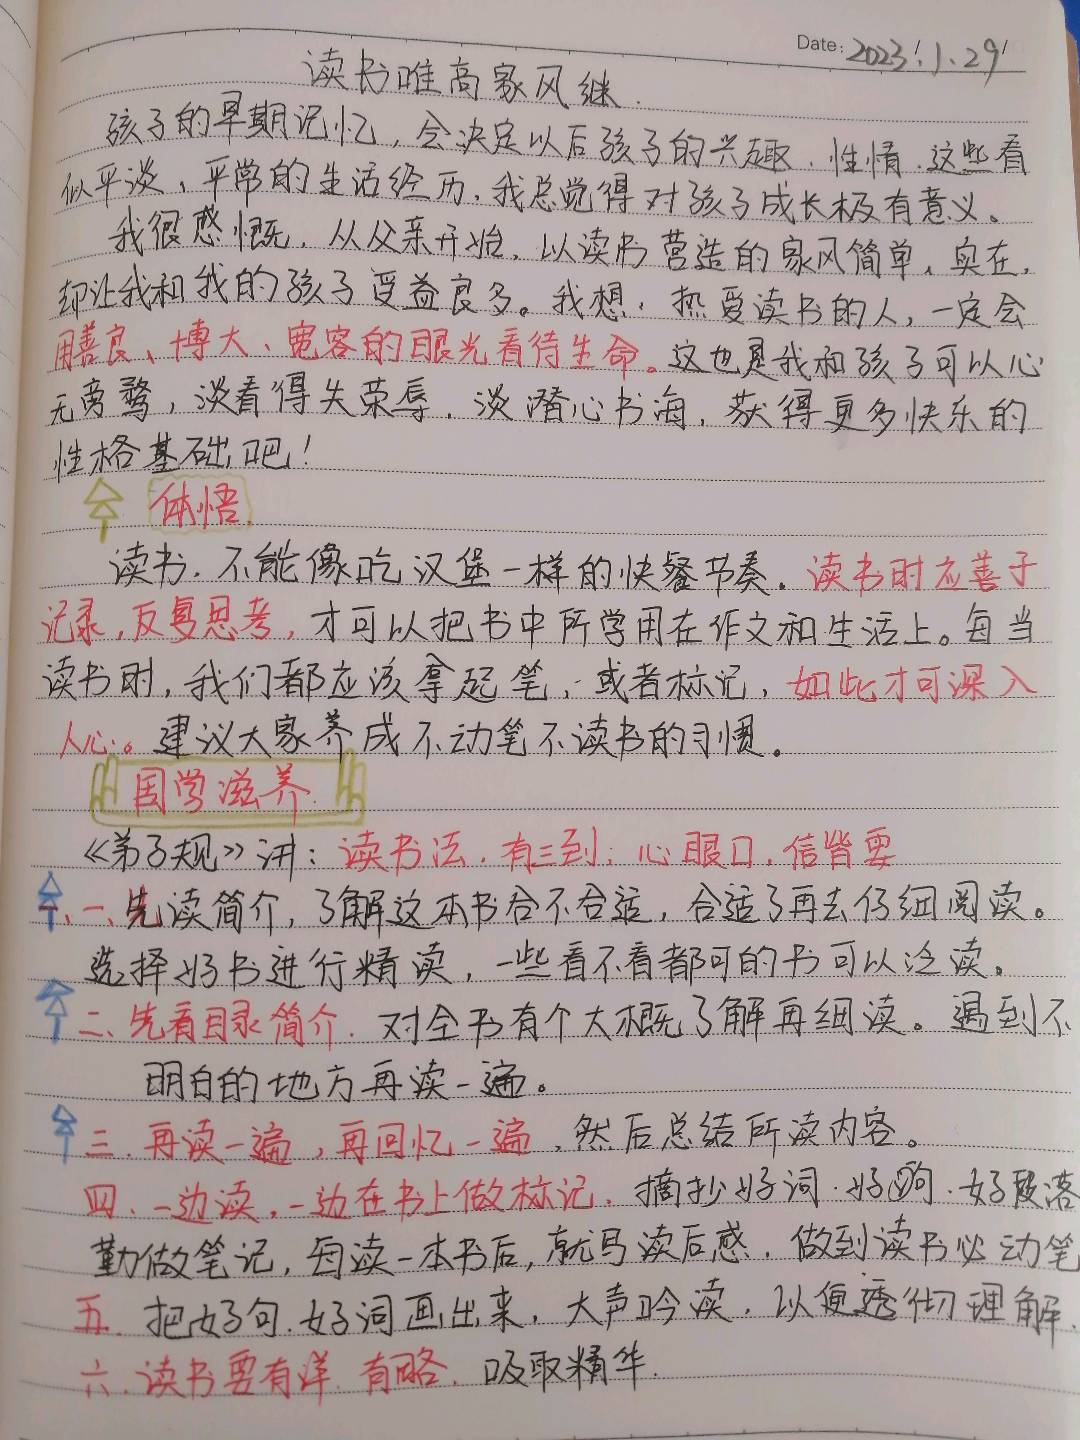 Date: 2023.1.29
读书唯高家风继.
孩子的早期记忆，会决定以后孩子的兴趣、性情.这些看
似平淡、平常的生活经历，我总觉得对孩子成长极有意义。
我很感慨，从父亲开始，以读书营造的家风简单、实在，
却让我和我的孩子受益良多。我想，热爱读书的人，一定会
用善良、博大、宽容的眼光看待生命。这也是我和孩子可以心
无旁骛，淡看得失荣辱，淡潜心书海，获得更多快乐的
性格基础吧！
体悟
读书.不能像吃汉堡一样的快餐节奏。读书时应善于
记录，反复思考，才可以把书中所学用在作文和生活上。每当
读书时，我们都应该拿起笔，或者标记，如此才可深入
人心。建议大家养成不动笔不读书的习惯。
国学滋养
《弟子规》讲：读书法，有三到，心眼口，信皆要
一、先读简介，了解这本书合不合适，合适了再去仔细阅读。
选择好书进行精读，一些看不看都可的书可以泛读。
二、先看目录简介.对全书有个大概了解再细读。遇到不
明白的地方再读一遍。
三.再读一遍，再回忆一遍，然后总结所读内容。
四、一边读，一边在书上做标记.摘抄好词.好句.好段落
勤做笔记，每读一本书后，就写读后感.做到读书必动笔
五.把好句.好词画出来，大声吟读.以便透彻理解.
六.读书要有详.有略.吸取精华.